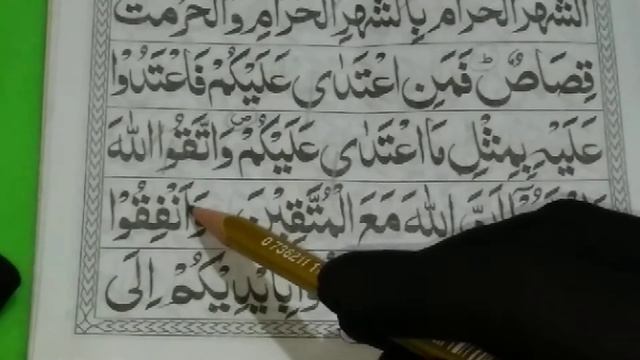 الشَّهْرُ الْحَرَامُ بِالشَّهْرِ الْحَرَامِ وَالْحُرُمٰتُ
قِصَاصٌ ؕ فَمَنِ اعْتَدٰى عَلَيْكُمْ فَاعْتَدُوْا
عَلَيْهِ بِمِثْلِ مَا اعْتَدٰى عَلَيْكُمْ ۪ وَاتَّقُوا اللّٰهَ
اللّٰهَ مَعَ الْمُتَّقِيْنَ وَاَنْفِقُوْا
بِاَيْدِيْكُمْ اِلَى
0736211